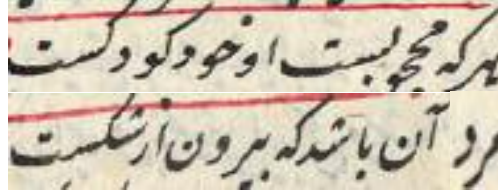 هر که محجوبست او خود کودکست
مرد آن باشد که بیرون از شکست